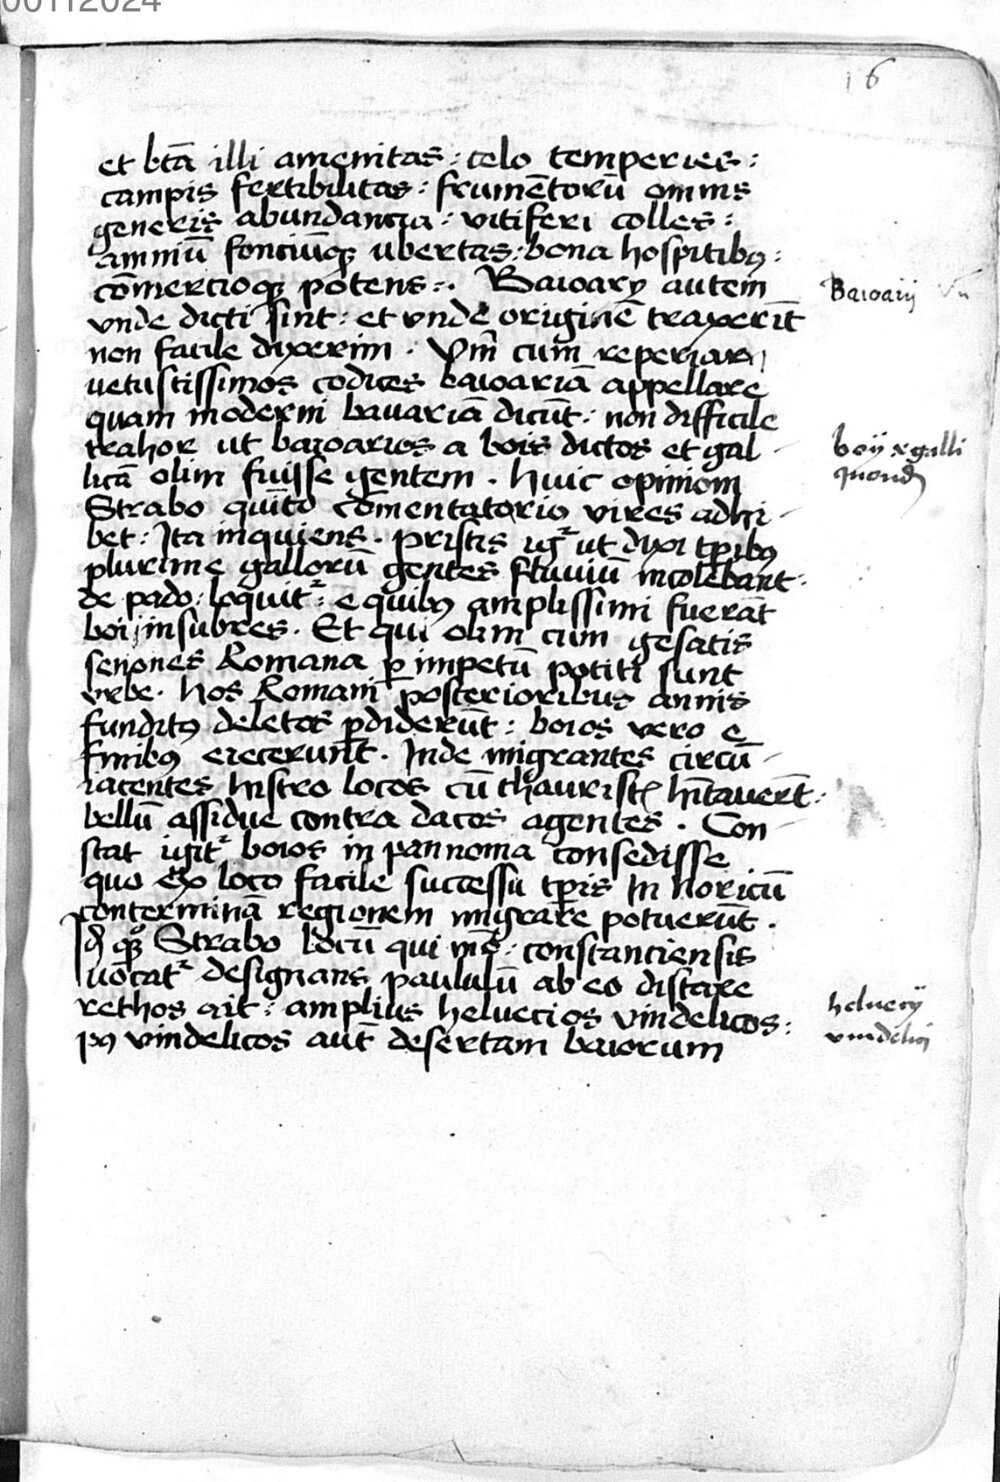 00112024
16
et btā illi amenitas : celo temperies :
campis fertibilitas : frumētorū omnis
generis abundancia : vitiferi colles :
amniū fonciūq; ubertas : bona hospitibꝯ :
cōmercioq; potens :. Baioarÿ autem
vnde dicti sint : et vnde originē traxerīt
non facile dixerim . Vm̄ cum reperiar
uetustissimos codices baioariā appellare
quam moderni bauariā dicūt : non difficile
trahor ut baioarios a bois dictos et gal
licā olim fuisse gentem . huic opiniom
Strabo quīto cōmentatorio vires adhi
bet : Ita inquiens . pristis ig̃ ut dixi tp̄ribꝯ
plurime gallorū gentes fluuiū incolebant .
de pado . loquit᷑ : e quibꝯ amplissimi fuerāt
boi insubres . Et qui olim cum gesatis
senones Romana ꝑ impetū potiti sunt
vrbe . hos Romani posterioribus annis
funditꝯ deletos ꝑdiderūt : boios vero e
finibꝯ eiecerunt . Inde migrantes circū
iacentes histro locos cū thauristꝭ hītauerūt :
bellū assidue contra dacos agentes . Con
stat igit᷑ boios in pannonia consedisse
quo ex loco facile successu tp̄ris In noricū
conterminā regionem migrare potuerūt .
Id q; Strabo locū qui mō : constanciensis
uocat᷑ designans paululū ab eo distare
rethos ait : amplius heluecios vindelicos :
pꝯ vindelicos aut̄ desertam baiorum
Baioarij
boÿ galli
quondā
heluecÿ
vindelici